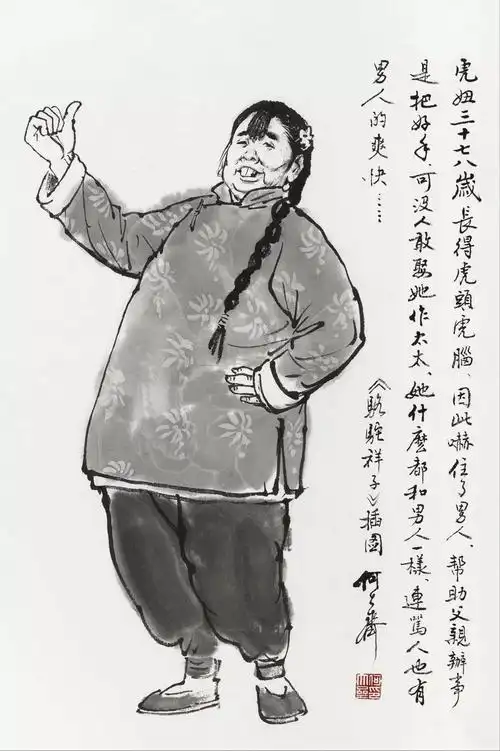 虎妞三十七八歲長得虎頭虎腦、因此嚇住了男人、帮助父親辦事
是把好手、可没人敢娶她作太太、她什麽都和男人一樣、連罵人也有
男人的爽快……
《駱駝祥子》插圖 何大齊